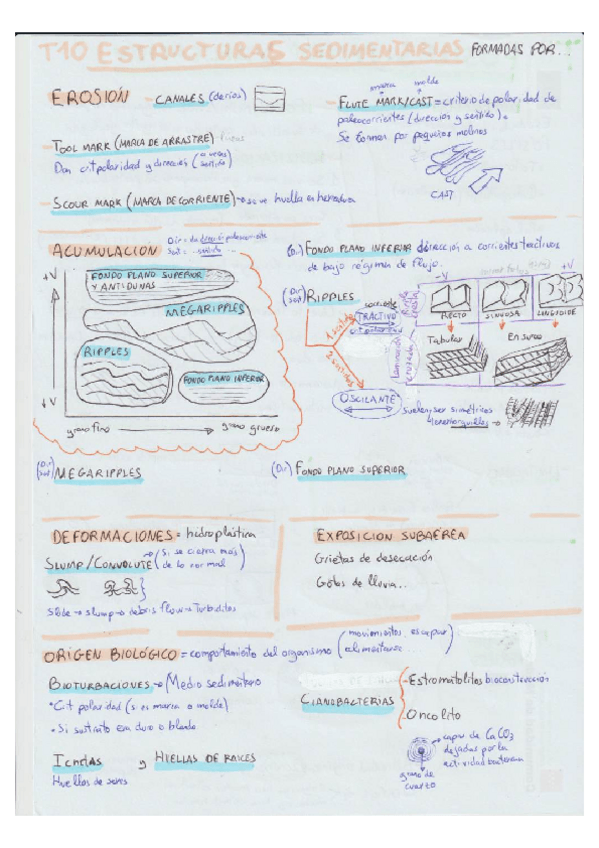 T10 ESTRUCTURAS SEDIMENTARIAS FORMADAS POR...
EROSIÓN - CANALES (de ríos)
marca molde
- FLUTE MARK/CAST = criterio de polaridad de
paleocorrientes (dirección y sentido).
Se forman por pequeños
CAST
- TOOL MARK (MARCA DE ARRASTRE)
Dan crit polaridad y dirección (a veces sentido)
- SCOUR MARK (MARCA DE CORRIENTE) → huella en herradura
ACUMULACIÓN
Dir = da dirección paleocorriente
Sent = sentido
+V
↓V
FONDO PLANO SUPERIOR
Y ANTIDUNAS
MEGARIPPLES
RIPPLES
FONDO PLANO INFERIOR
grano fino → grano grueso
(Dir) FONDO PLANO INFERIOR dirección a corrientes tractivas
de bajo régimen de flujo.
(Dir sent) RIPPLES
1 sentido
2 sentidos
TRACTIVO
OSCILANTE
-V +V
RECTO SINUOSA LINGUOIDE
laminación cruzada
Tabular En surco
Suelen ser simétricos
(Dir sent) MEGARIPPLES
(Dir) FONDO PLANO SUPERIOR
DEFORMACIONES = hidroplástica
SLUMP/CONVOLUTE → (si se cierra más de lo normal)
Slide → slump → debris flow → Turbiditas
EXPOSICION SUBAÉREA
Grietas de desecación
Gotas de lluvia...
ORIGEN BIOLÓGICO = comportamiento del organismo (movimientos escapar alimentarse...)
BIOTURBACIONES → Medio sedimentario
• Crit polaridad (si es marca o molde)
• Si sustrato era duro o blando
ICNITAS y HUELLAS DE RAICES
Huellas de seres
CIANOBACTERIAS
- Estromatolitos bioconstrucción
- Oncolito
capas de CaCO3
dejadas por la
actividad bacteriana
grano de
cuarzo